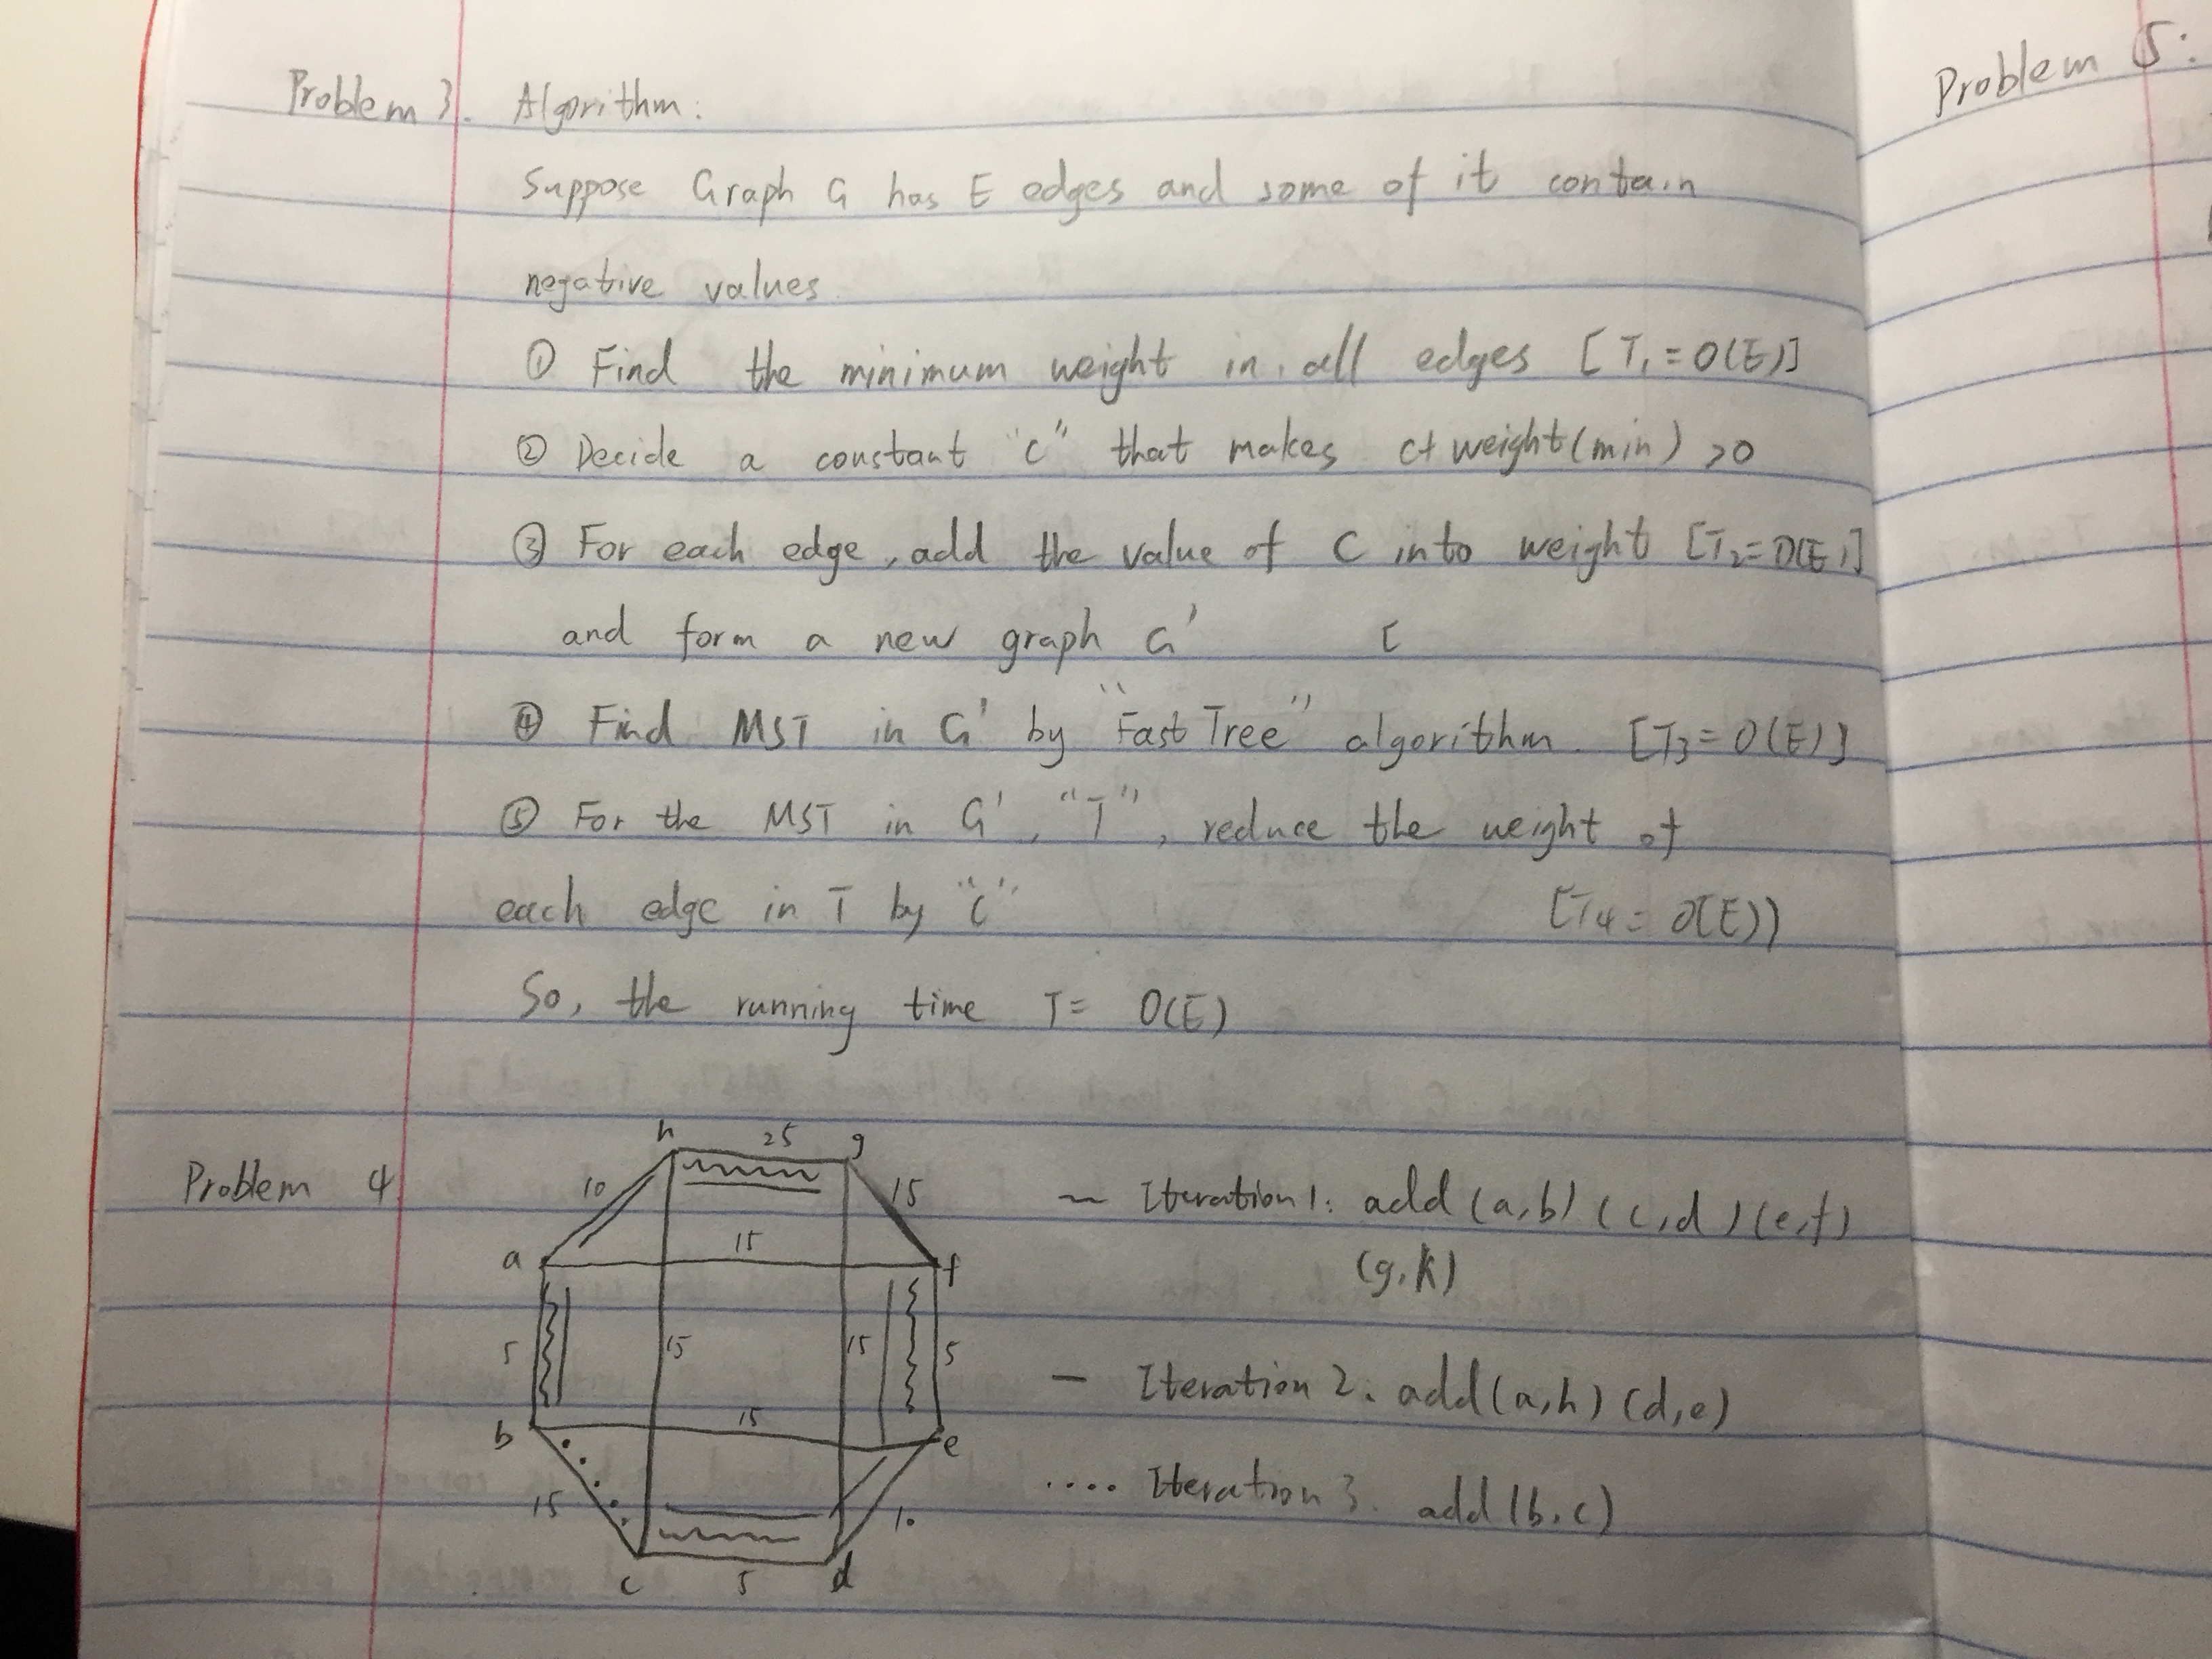 Problem 3. Algorithm:
Suppose Graph G has E edges and some of it contain
negative values
① Find the minimum weight in all edges [T1 = O(E)]
② Decide a constant "C" that makes C+ weight(min) >0
③ For each edge, add the value of C into weight [T2=O(E)]
and form a new graph G' [
④ Find MST in G' by "Fast Tree" algorithm. [T3 = O(E)]
⑤ For the MST in G', "T", reduce the weight of
each edge in T by "C" [T4 = O(E))
So, the running time T= O(E)
Problem 4
h 25 g
10 15
a 15 f
5 15 15 5
b 15 e
15 10
c 5 d
~ Iteration 1: add (a,b) (c,d) (e,f)
(g,k)
— Iteration 2. add (a,h) (d,e)
.... Iteration 3. add (b,c)
Problem 5: